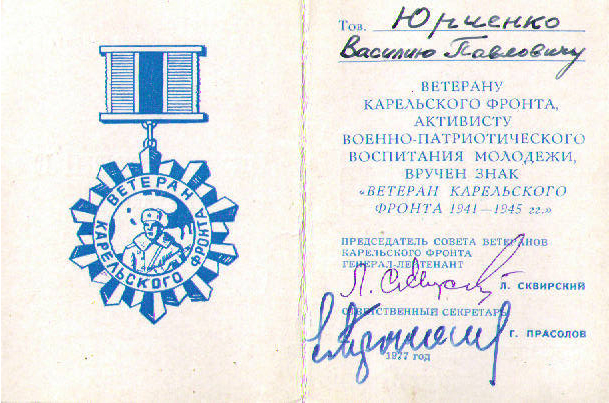 ВЕТЕРАН
КАРЕЛЬСКОГО ФРОНТА
Тов. Юрченко
Василию Павловичу
ВЕТЕРАНУ
КАРЕЛЬСКОГО ФРОНТА,
АКТИВИСТУ
ВОЕННО-ПАТРИОТИЧЕСКОГО
ВОСПИТАНИЯ МОЛОДЕЖИ,
ВРУЧЕН ЗНАК
«ВЕТЕРАН КАРЕЛЬСКОГО
ФРОНТА 1941—1945 гг.»
ПРЕДСЕДАТЕЛЬ СОВЕТА ВЕТЕРАНОВ
КАРЕЛЬСКОГО ФРОНТА
ГЕНЕРАЛ-ЛЕЙТЕНАНТ
Л. СКВИРСКИЙ
ОТВЕТСТВЕННЫЙ СЕКРЕТАРЬ
Г. ПРАСОЛОВ
1977 год